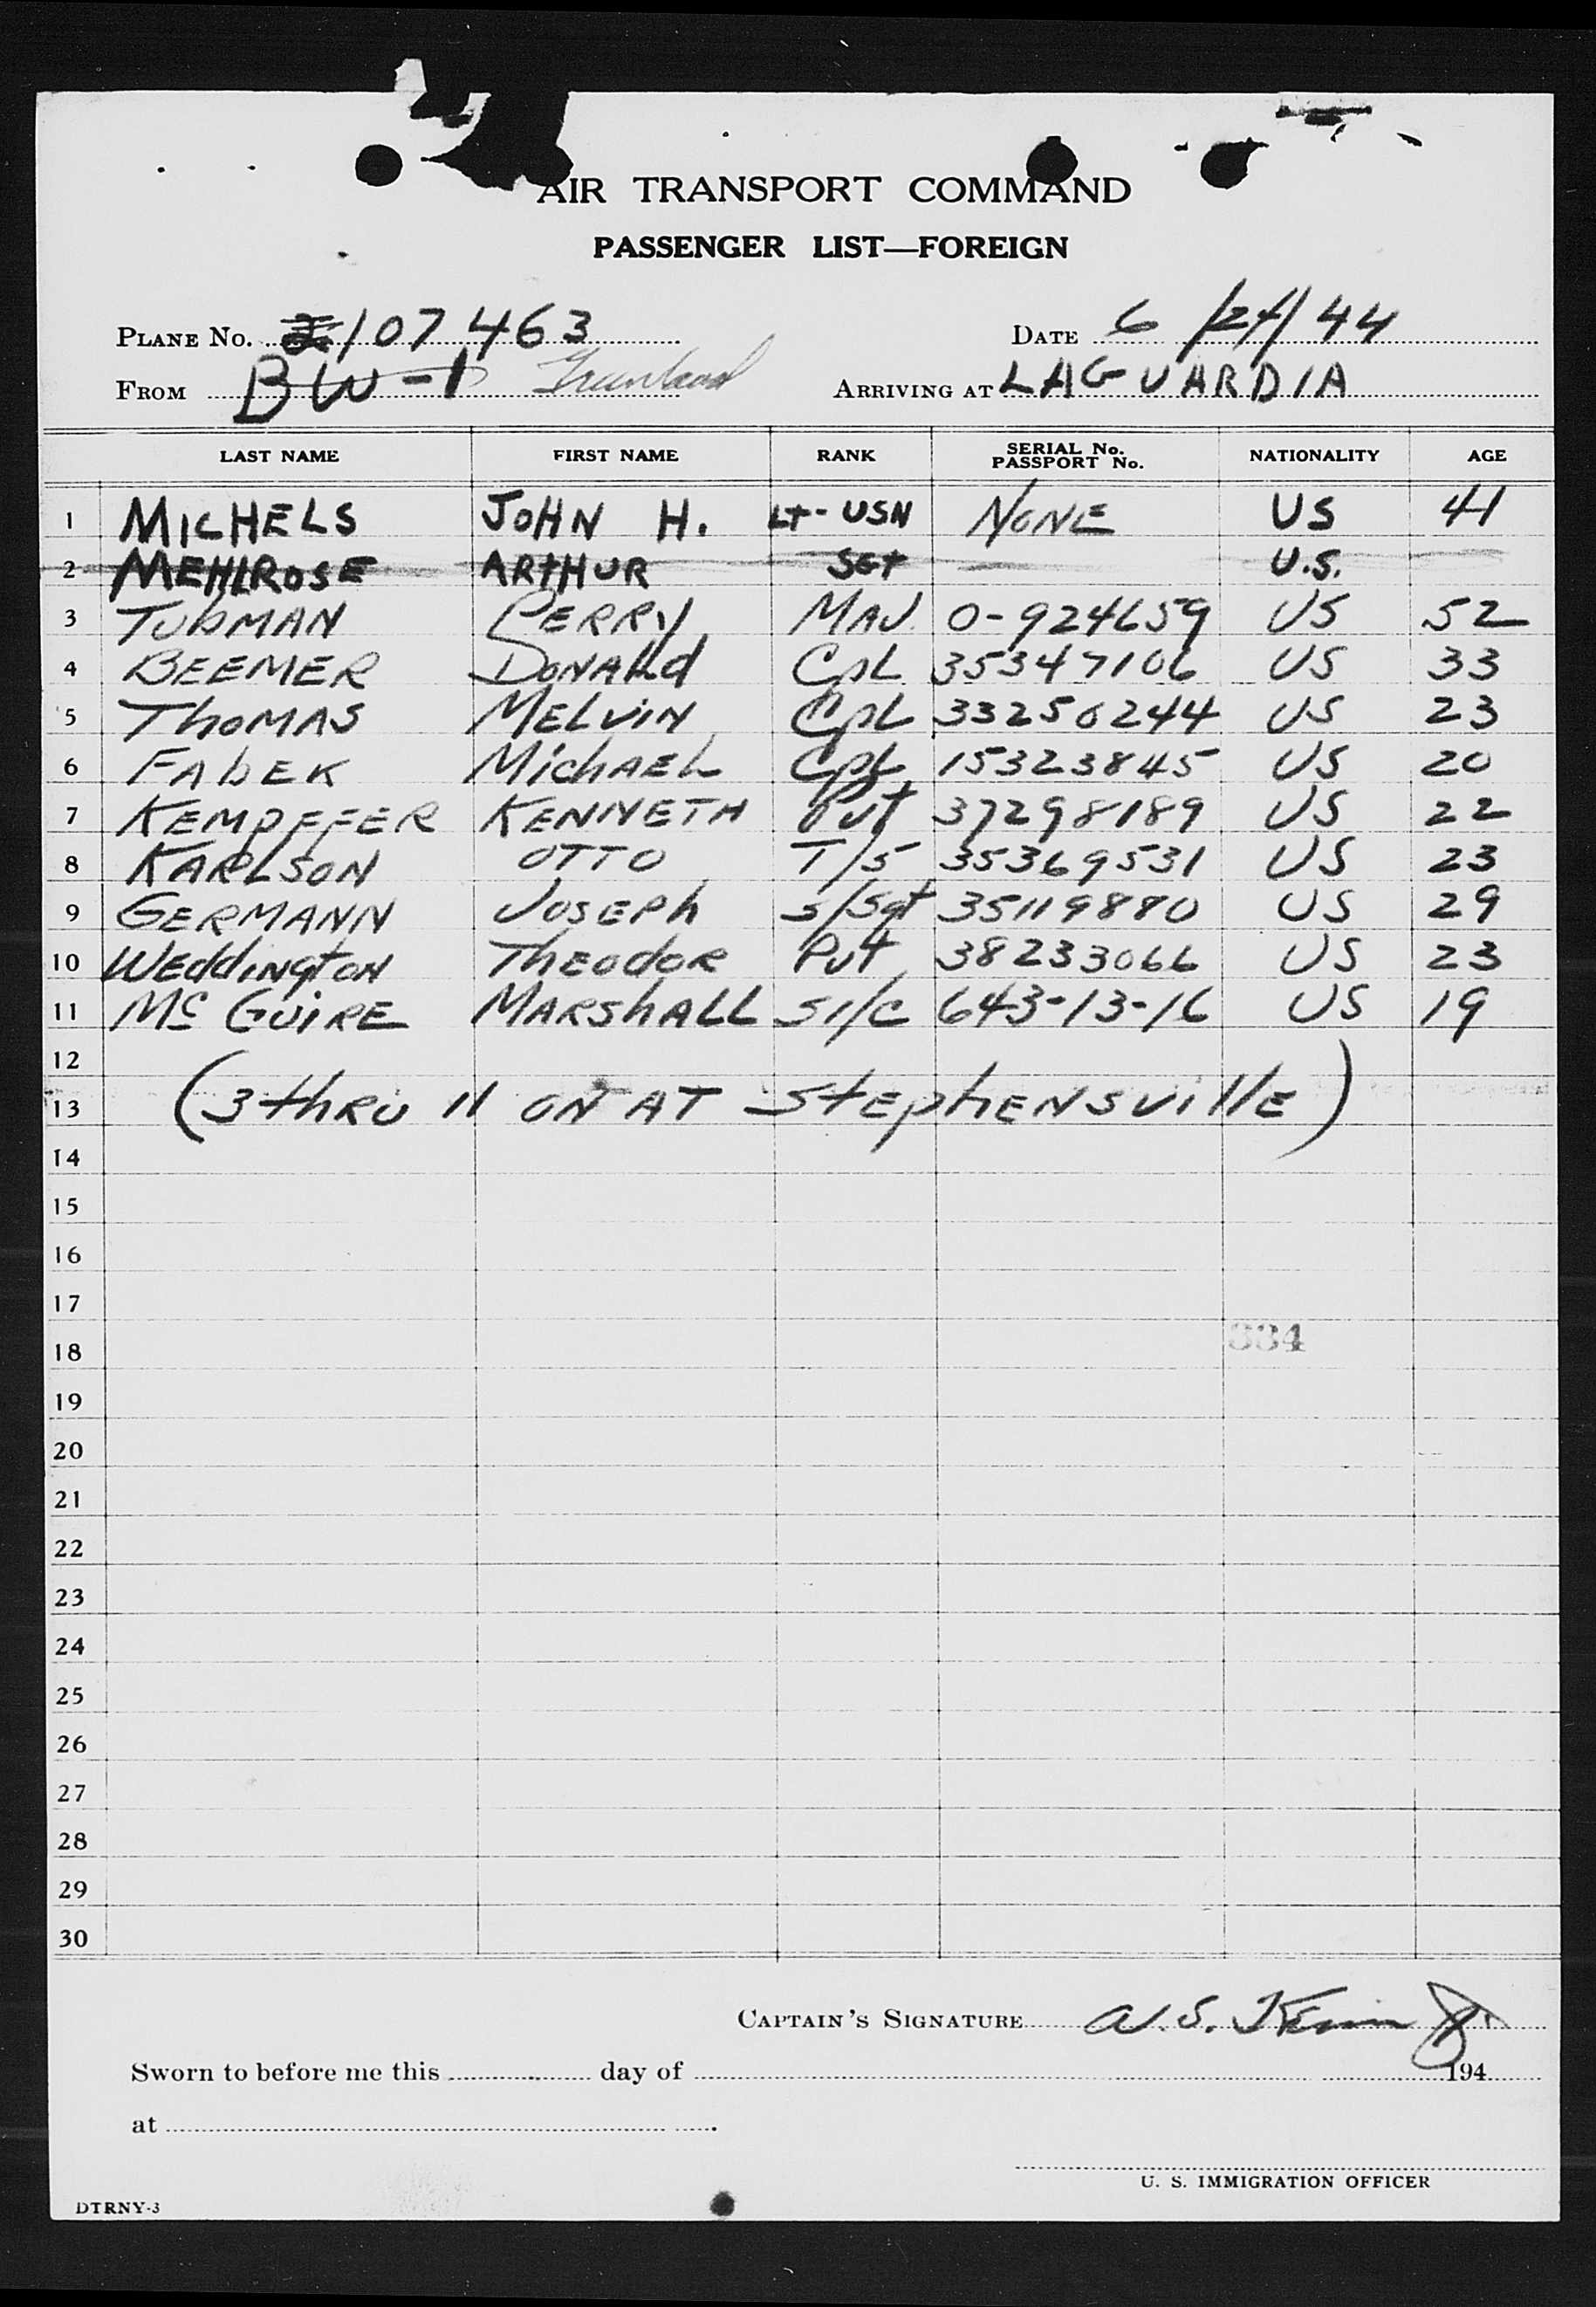 AIR TRANSPORT COMMAND
PASSENGER LIST—FOREIGN
PLANE No. 107463 DATE 6/24/44
FROM BW-1 Greenland ARRIVING AT LAGUARDIA
LAST NAME FIRST NAME RANK SERIAL No. PASSPORT No. NATIONALITY AGE
1 MICHELS JOHN H. LT-USN NONE US 41
2 MEHLROSE ARTHUR SGT U.S.
3 TUBMAN PERRY MAJ 0-924659 US 52
4 BEEMER DONALd CpL 35347106 US 33
5 ThOMAS MELViN CpL 33250244 US 23
6 FAbEK MichAEL CpL 15323845 US 20
7 KEMPFFER KENNETH Pvt 37298189 US 22
8 KARLSON OTTO T/5 35369531 US 23
9 GERMANN JOSEPh S/Sgt 35119880 US 29
10 WEddiNgtON ThEOdOR Pvt 38233066 US 23
11 McGUiRE MARShALL S1/c 643-13-16 US 19
12
13 (3 thRU 11 ON AT StEphENSVillE)
14
15
16
17
18 334
19
20
21
22
23
24
25
26
27
28
29
30
CAPTAIN'S SIGNATURE
Sworn to before me this day of 194
at
U. S. IMMIGRATION OFFICER
DTRNY-3